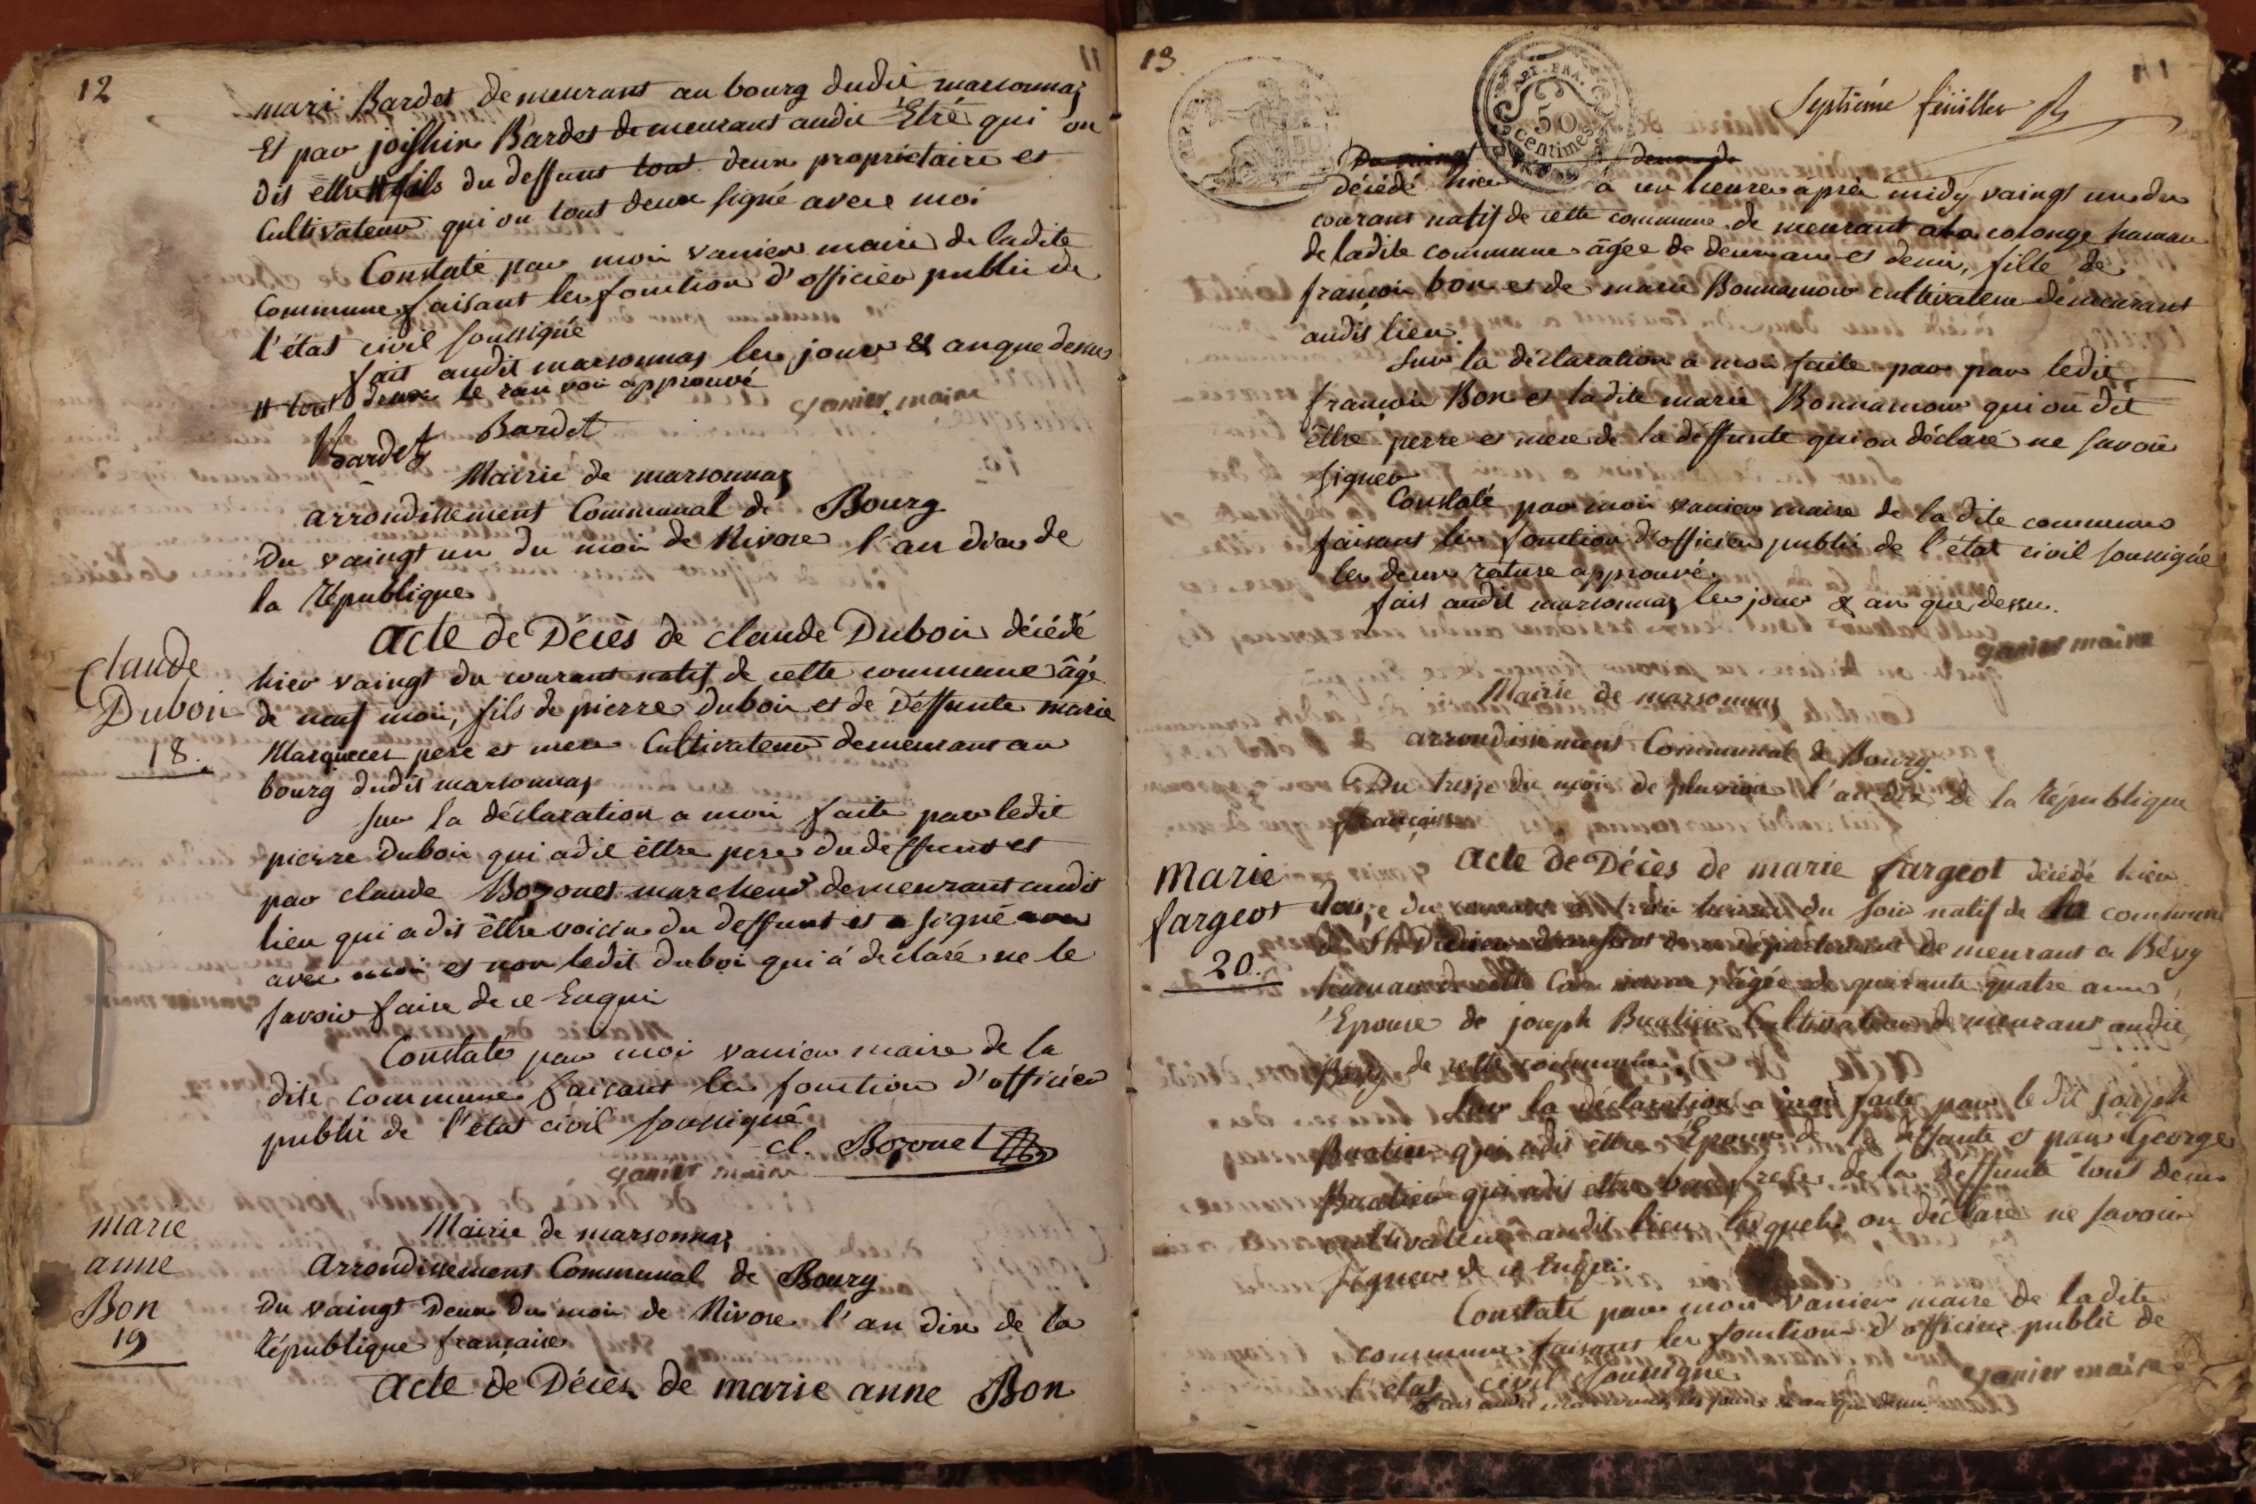 12
mari Bardet demeurant au bourg dudit marsonnas
Et par joishin Bardet demeurant audit Etré qui on
dit être # fils du deffunt tout deux proprietaire et
Cultivateur qui on tout deux signé avec moi
Constaté par moi vanier maire de ladite
Commune faisant les fonction d'officier public de
l'état civil soussigné
fait audit marsonnas les jour & an que dessus
# tout deux le ranvoi approuvé
vanier maire
Bardet
Bardet
Mairie de marsonnas
arrondissement Communal de Bourg
Du vaingt un du moi de Nivose l'an dix de
la République
Claude
Duboi
18.
Acte de Décès de claude Duboi décédé
hier vaingt du courant natif de cette commune âgé
de neuf moi, fils de pierre duboi et de Deffunte marie
Marguerer pere et mere Cultivateur demeurant au
bourg dudit marsonnas
sur la déclaration a moi faite par ledit
pierre duboi qui adit être pere du deffunt et
par claude Bozonet marchend demeurant audit
lieu qui a dit être voicin du deffunt et a signé
avec moi et non ledit duboi qui à déclaré ne le
savoir faire de ce Enqui
Constaté par moi vanier maire de la
dite commune faisant les fonction d'officier
public de l'état civil soussigné
cl. Bozonet
vanier maire
marie
anne
Bon
19
Mairie de marsonnas
arrondissement Communal de Bourg
Du vaingt deux du moi de Nivose l'an dix de la
République française
Acte de Décès de marie anne Bon
13
50
centimes
Septième feuillet
Du vaingt deux de
décédé hier à un heure après midy vaingt un du
courant natif de cette commune demeurant a la colonge hamau
de ladite commune âgée de deux ans et demi, fille de
françois bon et de marie Bonnamour cultivateur demeurant
audit lieu
sur la déclaration a moi faite par par ledit
françois Bon et ladite marie Bonnamour qui on dit
être perre et mere de la deffunte qui on déclaré ne savoir
signer
Constaté par moi vanier maire de la dite commune
faisant les fonction d'officier public de l'état civil soussigné
les deux rature approuvé
fait audit marsonnas les jour & an que dessu.
vanier maire
Mairie de marsonnas
arrondissement Communal de Bourg
Du treize du moi de pluviose l'an dix de la République
française
Marie
fargeot
20.
Acte de Décès de marie fargeot décédé hier
douze du courant a troi heure du soir natif de la commune
de St Didier demeurant a Bévy
hamau de cette Commune, âgée de quarante quatre anné
Epouse de joseph Buatier Cultivateur demeurant audit
Bévy de cette commune.
sur la déclaration a moi faite par le dit joseph
Buatier qui adit être Epoux de la deffunte et par George
Buatier qui adit être beau frere de la deffunte tout deux
cultivateur audit lieu lesquels on déclaré ne savoir
signer de ce Enqui.
Constaté par moi vanier maire de ladite
commune faisant les fonction d'officier public de
l'état civil soussigné
vanier maire
fait audit marsonnas les jour & an que dessu.